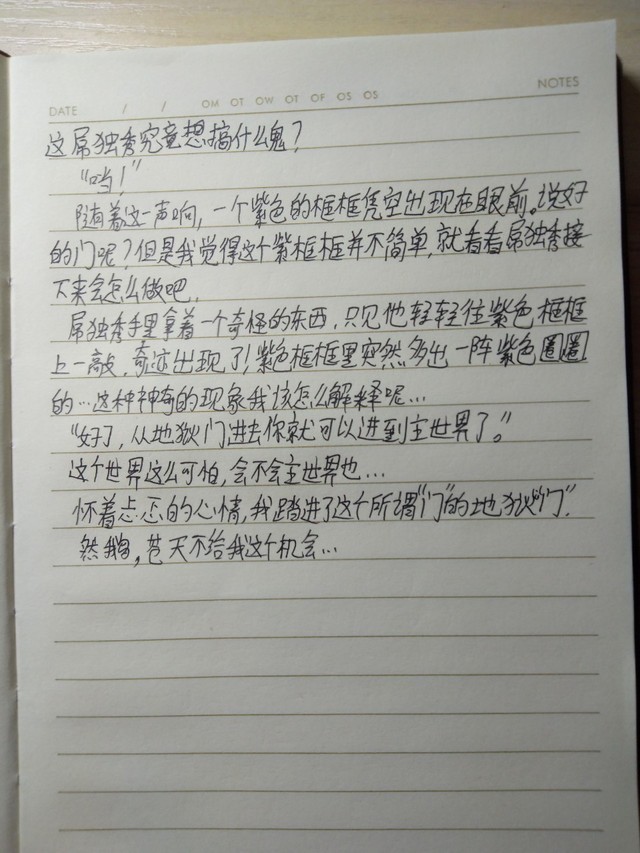 DATE / / OM OT OW OT OF OS OS NOTES
这屌独秀究竟想搞什么鬼？
“当！”
随着这一声响，一个紫色的框框凭空出现在眼前。说好
的门呢？但是我觉得这个紫框框并不简单，就看看屌独秀接
下来会怎么做吧。
屌独秀手里拿着一个奇怪的东西，只见他轻轻往紫色框框
上一敲，奇迹出现了！紫色框框里突然多出一阵紫色圈圈
的…这种神奇的现象我该怎么解释呢…
“好了，从地狱门进去你就可以进到主世界了。”
这个世界这么可怕，会不会主世界也…
怀着忐忑的心情，我踏进了这个所谓“门”的地狱“门”.
然，苍天不给我这个机会…